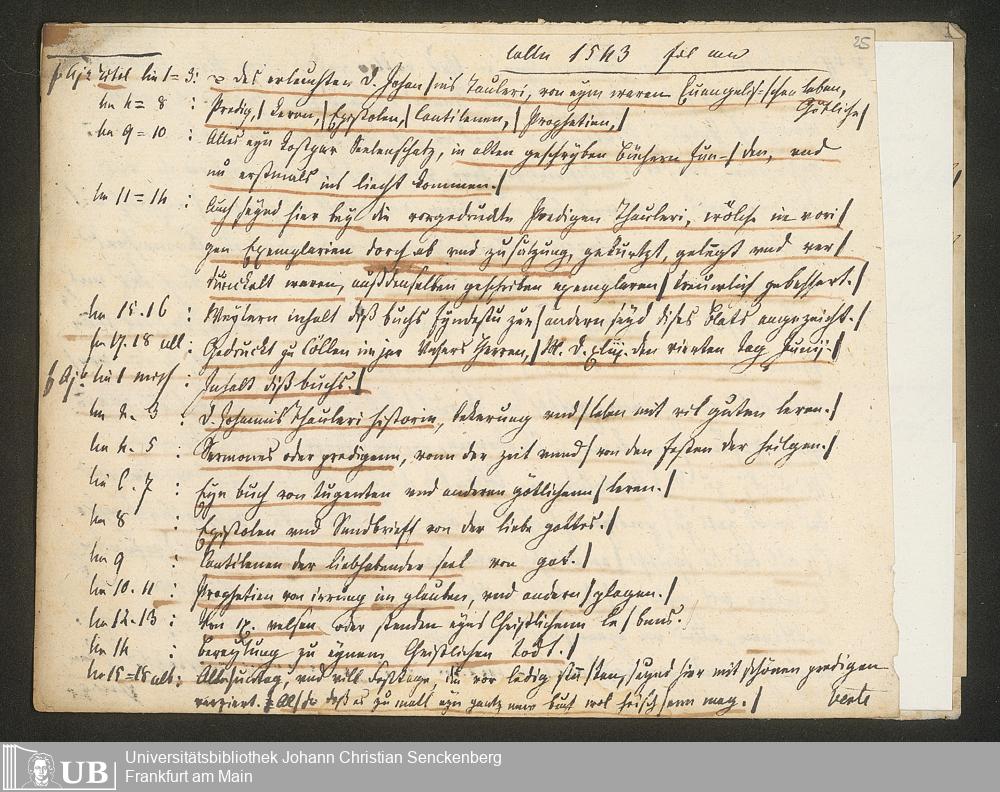 25
Cölln 1543 fol
Titel lin 1=3: des erleuchten D. Johannis Tauleri, von eym waren Euangelischen leben,
Götliche
lin 4=8 : Predig,| Leren,| Epistolen,| Cantilenen,| Prophetien,|
lin 9=10 : Alles eyn kostpar Seelenschatz, in alten geschryben Büchern fun=| den, vnd
nu erstmals ins liecht kommen.|
lin 11=14 : Auch seynd hier bey die vorgedruckte Predigen Thauleri, wölche in vori|
gen Exemplarien dorch ab vnd zusatzung, gekurtzt, gelengt vnd ver|
dunckelt waren, auß denselben geschriben exemplaren| treuwlich gebessert.|
lin 15.16 : Weytern inhalt diß buchs fyndestu zur| andern seyd dises blats angezeicht.|
lin 17.18 alt : Gedruckt zu Cöllen im jar Vnsers Herren,| M. D. xliij. den vierten tag Junij.|
lin 1 : Inhalt diß buchs.|
lin 2.3 : D. Johannis Thauleri historia, bekerung vnd| leben mit vil guten leren.|
lin 4.5 : Sermones oder predigenn, vonn der zeit vnnd| von den festen der heilgen.|
lin 6.7 : Eyn buch von tugenten vnd anderen götlichenn| leren.|
lin 8 : Epistolen vnd Sendbrieff von der liebe gottes.|
lin 9 : Cantilenen der liebhabender seel von got.|
lin 10.11 : Prophetien von irrung im glauben, vnd andern| plagen.|
lin 12.13 : Von ix. velsen oder stenden eyns Christlichenn le| bens.|
lin 14 : Bereytung zu eynem Christlichen todt.|
lin 15=18 alt: Alle sontag, vnd vill festtage, die vor ledig stunden, seynd hier mit schönen predigen
verziert. Also daß es zu mall eyn gantz new buch wol heischenn mag.| verte
Universitätsbibliothek Johann Christian Senckenberg
Frankfurt am Main
UB